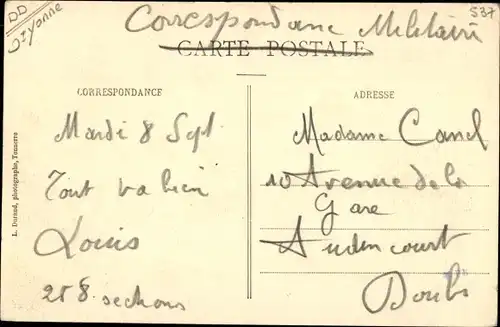 DD
St Yonne
537
Correspondance Militaire
CARTE POSTALE
CORRESPONDANCE
ADRESSE
Mardi 8 Sept
Tout va bien
Louis
258 sections
Madame Canel
10 Avenue de la
Gare
Audincourt
Doubs
L. Durand, photographe, Tonnerre